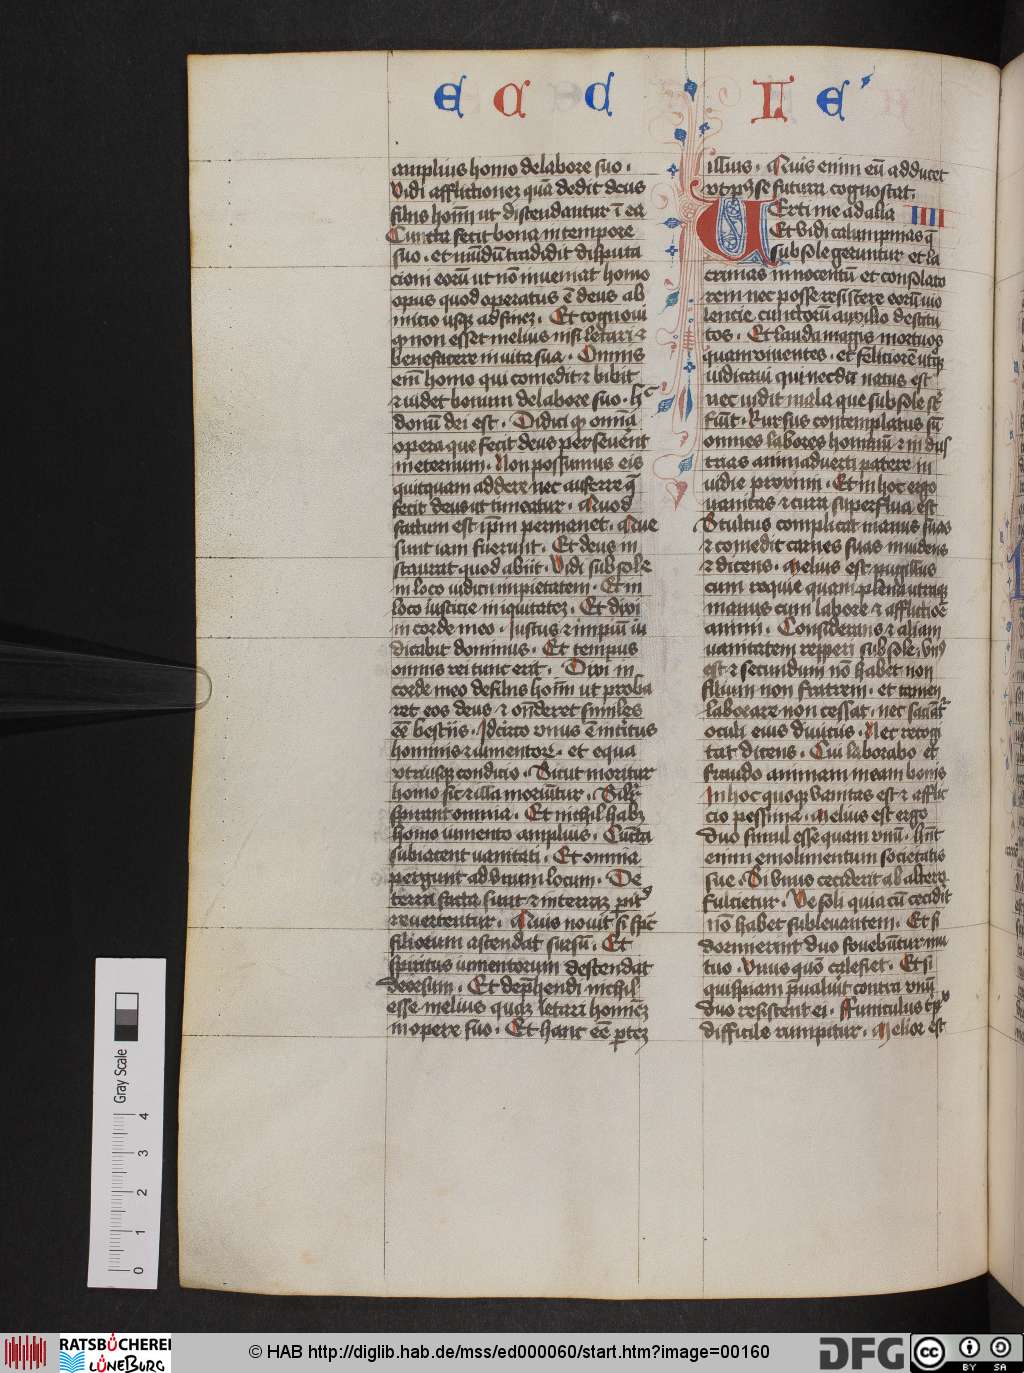 E C C L E
amplius homo de labore suo .
Vidi afflictionez quā dedit deus
filiis hoīm ut distendantur ī ea
Cuncta fecit bona in tempore
suo . et mūdū tradidit disputa
cioni eorū ut nō inueniat homo
opus quod operatus ē deus ab
inicio usqꝫ ad finez . Et cognoui
ꝙ non esset melius nisi letari ⁊
benefacere in uita sua . Omnis
eni᷒ homo qui comedit ⁊ bibit
⁊ uidet bonum de labore suo . hͨ
donū dei est . Didici ꝙ omīa
opera que fecit deus perseueͬnt
in eternum . Non possumus eis
quicquam addere nec auferre q̄
fecit deus ut timeatur . Quod
factum est ip̄m permanet . Que
sunt iam fuerunt . Et deus in
staurat quod abiit . Vidi sub sole
in loco iudicii impietatem . Et in
loco iusticie iniquitatez . Et dixi
in corde meo . Iustus ⁊ impiū iu
dicabit dominus . Et tempus
omnis rei tunc erit . Dixi in
corde meo de filiis hoīm ut proba
ret eos deus ⁊ on̄deret similes
eē bestiis . Idcirco vnus ē intͥitus
hominis ⁊ iumentorꝫ . et equa
vtriusqꝫ condicio . Sicut moritur
homo sic ⁊ illa moriūtur . Silͬ
spirant omnia . Et nichil habꝫ
homo iumento amplius . Cūcta
subiacent uanitati . Et omnia
pergunt ad vnum locum . De
terra facta sunt ⁊ in terraꝫ pͥt᷒
reuertentur . Quis nouit si spūs
filiorum ascendat sursū . Et
spiritus iumentorum descendat
deorsum . Et dep̄hendi nichil
esse melius quaꝫ letari hominez
in opere suo . Et hanc eē ꝑtez
illius . Quis enim eū adducet
vt p᷒ se futura cognoscat .
Uerti me ad alia IIII
Et vidi calumpnias q̄
sub sole geruntur et la
crimas innocentū et consolato
rem nec posse resistere eorū uio
lencie cunctorū auxilio destitu
tos . Et laudaui magis mortuos
quam viuentes . et feliciorē utͦqꝫ
iudicaui qui necdū natus est
nec uidit mala que sub sole st̄
fiūt . Rursus contemplatus sū
omnes labores hominū ⁊ indus
trias animaduerti patere in
uidie proximi . Et in hoc ergo
uanitas ⁊ cura superflua est
Stultus complicat manus suas
⁊ comedit carnes suas inuidens
⁊ dicens . Melius est pugillus
cum requie quam plena utraqꝫ
manus cum labore ⁊ afflictioē
animi . Considerans ⁊ aliam
uanitatem repperi sub sole . vn᷒
est ⁊ secundum nō habet non
filium non fratrem . et tamen
laborare non cessat . nec saciātͬ
oculi eius diuiciis . Nec recogi
tat dicens . Cui laboro et
fraudo animam meam bonis
In hoc quoqꝫ vanitas est ⁊ afflic
cio pessima . Melius est ergo
duo simul esse quam vnū . hn̄t
enim emolimentum societatis
sue . Si vnus ceciderit ab alterͦ
fulcietur . Ve soli quia cū cecidit
nō habet subleuantem . Et si
dormierint duo fouebūtur mu
tuo . vnus quō calefiet . Et si
quispiam p̄ualuit contra vnū
duo resistent ei . Funiculus tͥp᷒
difficile rumpitur . Melior est
Gray Scale
0 1 2 3 4
RATSBÜCHEREI
LÜNEBURG
© HAB http://diglib.hab.de/mss/ed000060/start.htm?image=00160
DFG
cc BY SA